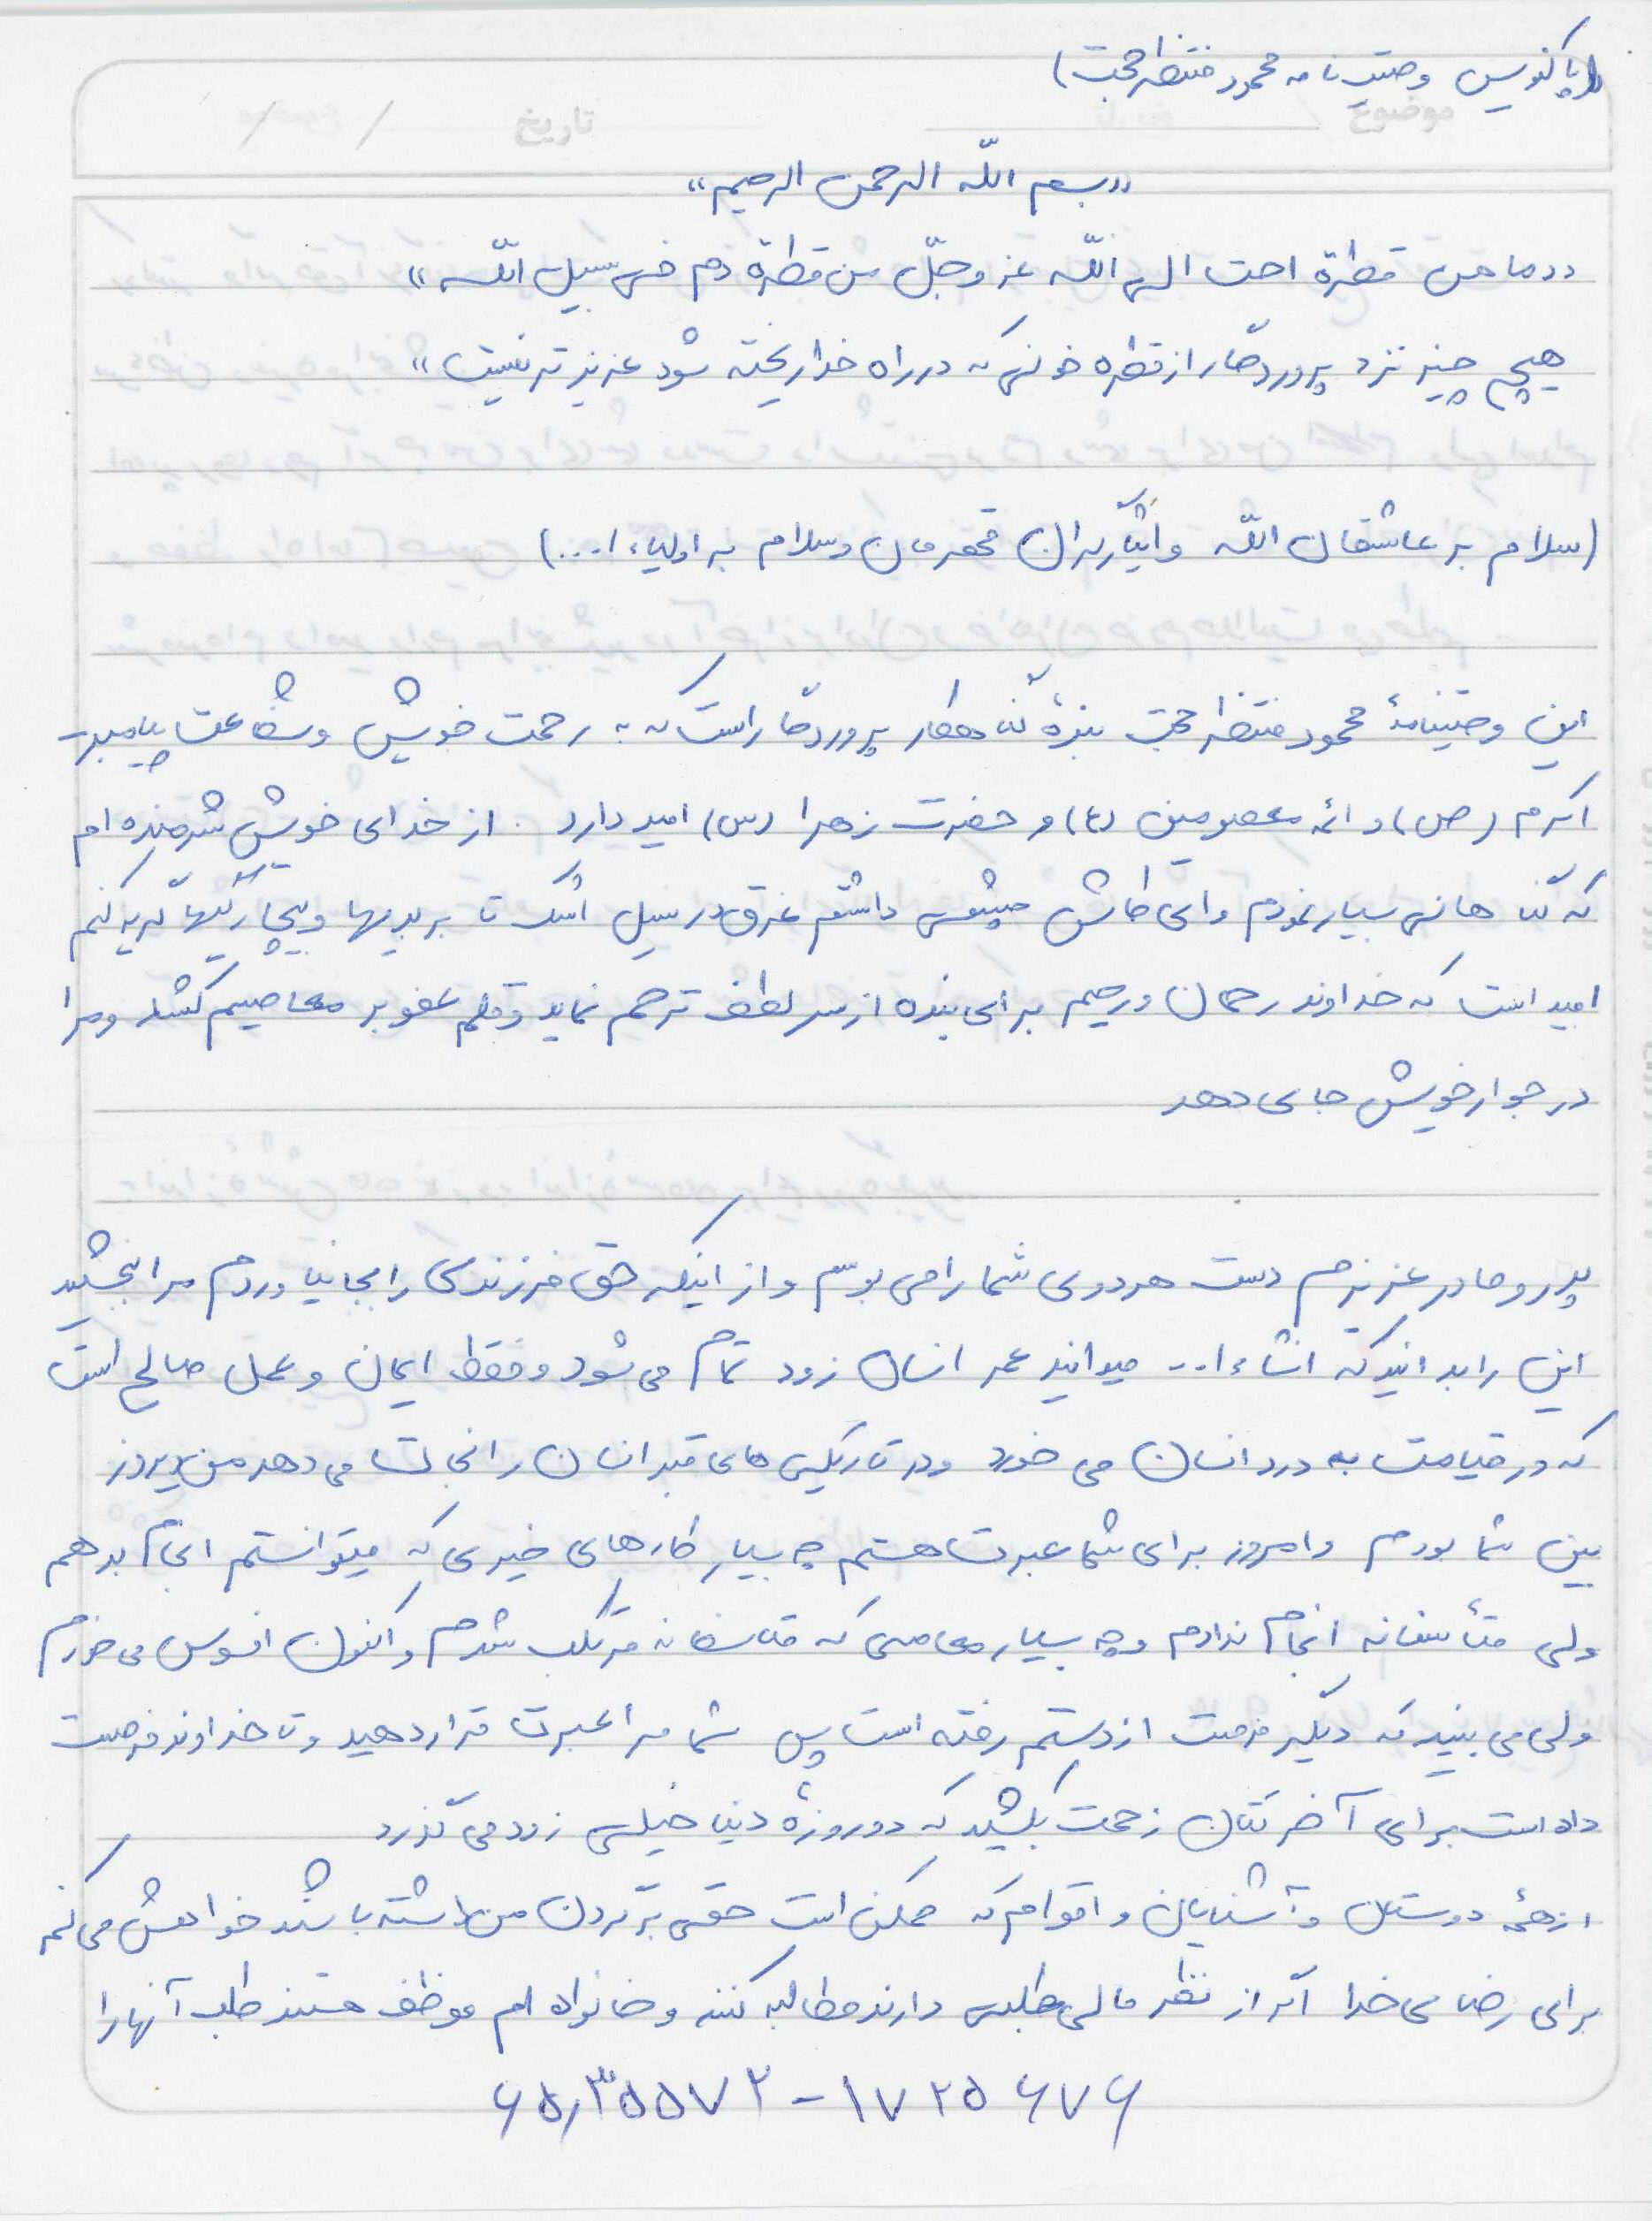 (پاکنویس وصیت نامه محمود منتظر حجت)
موضوع تاریخ / /
«بسم اللّه الرحمن الرحیم»
«ما من قطرة احب الی اللّه عز وجلّ من قطرة دم فی سبیل اللّه»
هیچ چیز نزد پروردگار از قطره خونی که در راه خدا ریخته شود عزیزتر نیست»
(سلام بر عاشقان اللّه و ایثارگران قهرمان و سلام به اولیاء ا...)
این وصیتنامهٔ محمود منتظر حجت بندهٔ گناهکار پروردگار است که به رحمت خویش و شفاعت پیامبر
اکرم (ص) و ائمه معصومین (ع) و حضرت زهرا (س) امید دارد . از خدای خویش شرمنده ام
که گناهانی بسیار نمودم و ای کاش چشمی داشتم غرق در سیل اشک تا بر بدیها و بیچارگیها گریه کنم
امید است که خداوند رحمان و رحیم بر این بنده از سر لطف ترحم نماید و قلم عفو بر معاصیم کشد و مرا
در جوار خویش جای دهد
پدر و مادر عزیزم دست هردوی شما را می بوسم و از اینکه حق فرزندی را بجا نیاوردم مرا ببخشید
این را بدانید که انشاءا... میدانید عمر انسان زود تمام می شود و فقط ایمان و عمل صالح است
که در قیامت به درد انسان می خورد و در تاریکی های قبر انسان را نجات می دهد من دیروز
بین شما بودم و امروز برای شما عبرت هستم چه بسیار کارهای خیری که میتوانستم انجام بدهم
ولی متأسفانه انجام ندادم و چه بسیار معاصی که متاسفانه مرتکب شدم و اکنون افسوس می خورم
ولی می بینید که دیگر فرصت از دستم رفته است پس شما مرا عبرت قرار دهید و تا خداوند فرصت
داده است برای آخرتتان زحمت بکشید که دو روزهٔ دنیا خیلی زود می گذرد
از همهٔ دوستان و آشنایان و اقوام که ممکن است حقی بر گردن من داشته باشند خواهش می کنم
برای رضای خدا اگر از نظر مالی طلبی دارند مطالبه کنند و خانواده ام موظف هستند طلب آنها را
۶۵٫۳۵۵۷۲-۱۷۲۵۶۷۶